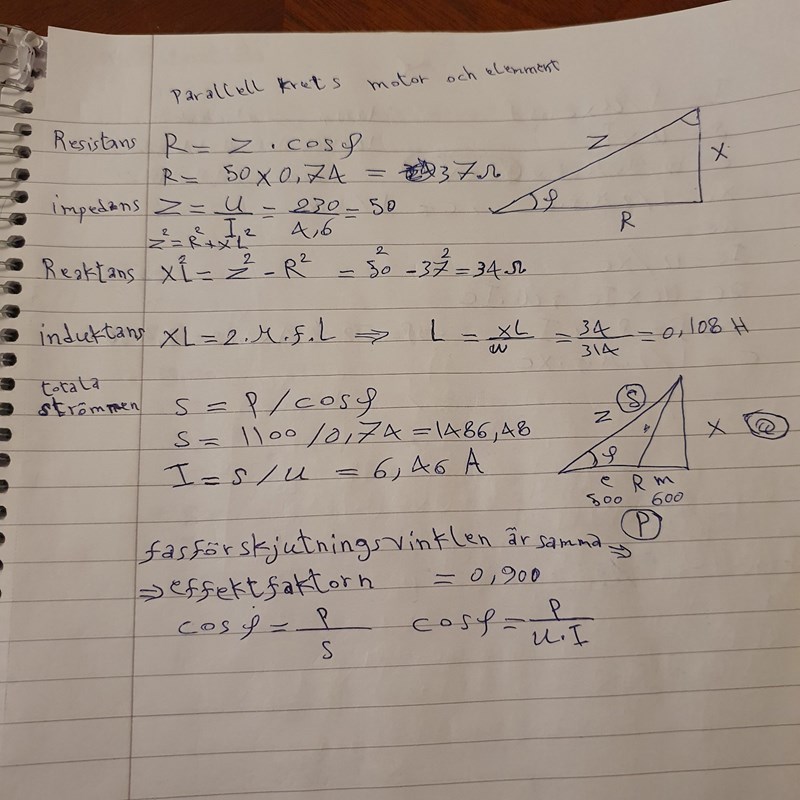 Parallell krets motor och elenment
Resistans R = Z . cosφ
R = 50 x 0,74 = 37Ω
impedans Z = U/I = 230/4,6 = 50
Z² = R² + XL²
Reaktans XL² = Z² - R² = 50² - 37² = 34Ω
induktans XL = 2.π.f.L ⇒ L = XL/ω = 34/314 = 0,108 H
totala
strömmen S = P / cosφ
S = 1100 / 0,74 = 1486,48
I = S / U = 6,46 A
fasförskjutningsvinklen är samma ⇒
⇒ effektfaktorn = 0,900
cosφ = P/S cosφ = P/U.I
Z
X
φ
R
Z S
X Q
φ
e R m
500 600
P